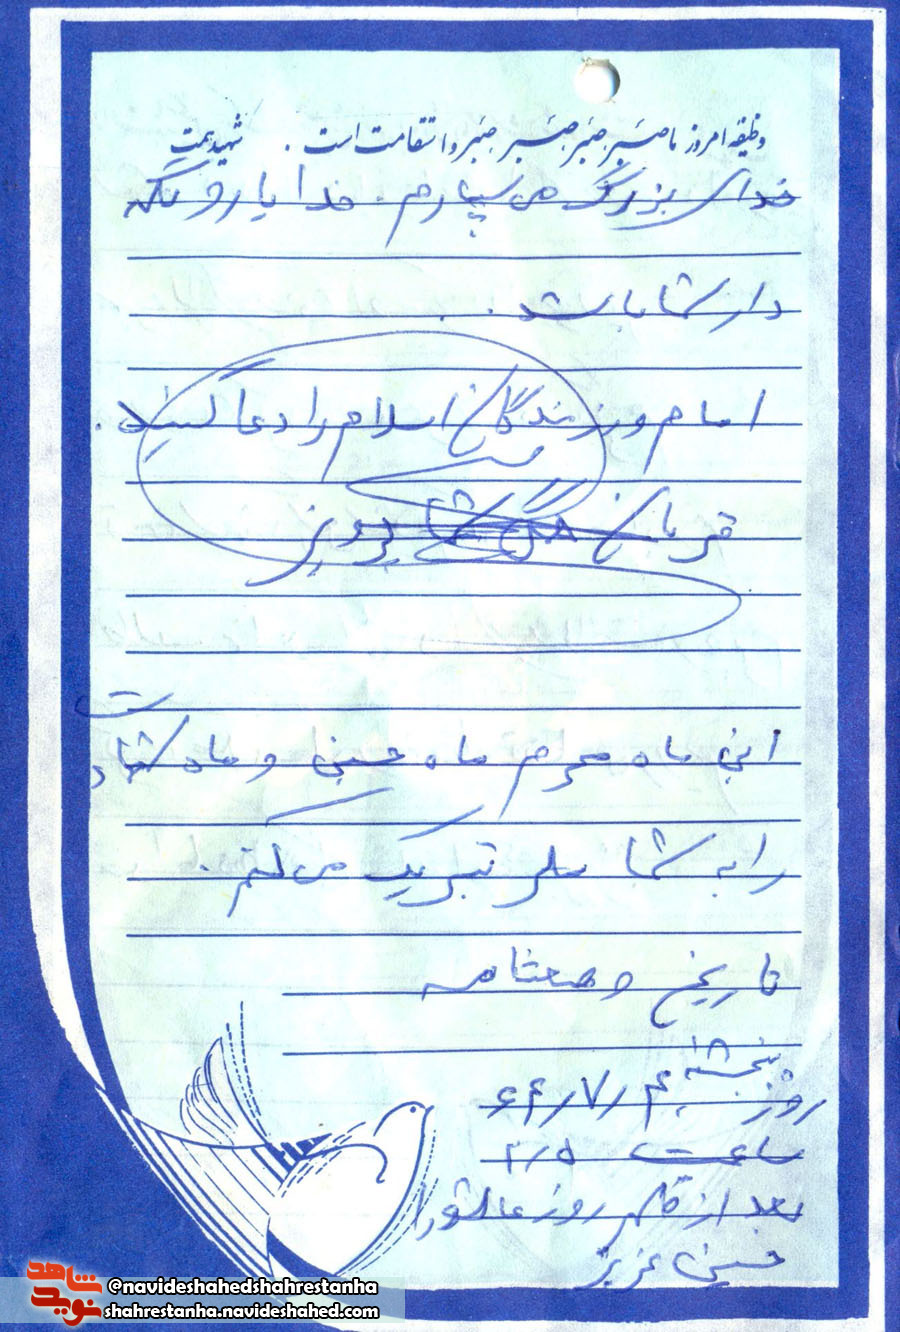 وظیفه امروز ما صبر، صبر، صبر، صبر و استقامت است. شهید همت
خدای بزرگ می سپارم. خدا یار و نگه
دار شما باشد.
امام و رزمندگان اسلام را دعا کنید.
قربان پرویز
این ماه محرم ماه حسینی و ماه شهادت
را به شما تبریک می گنم.
تاریخ وصیتنامه
روز پنجشنبه ۶۴/۷/۴
ساعت ۲/۵
بعد از ظهر روز عاشورا
حسین عزیز
شاهد
نوید
@navideshahedshahrestanha
shahrestanha.navideshahed.com